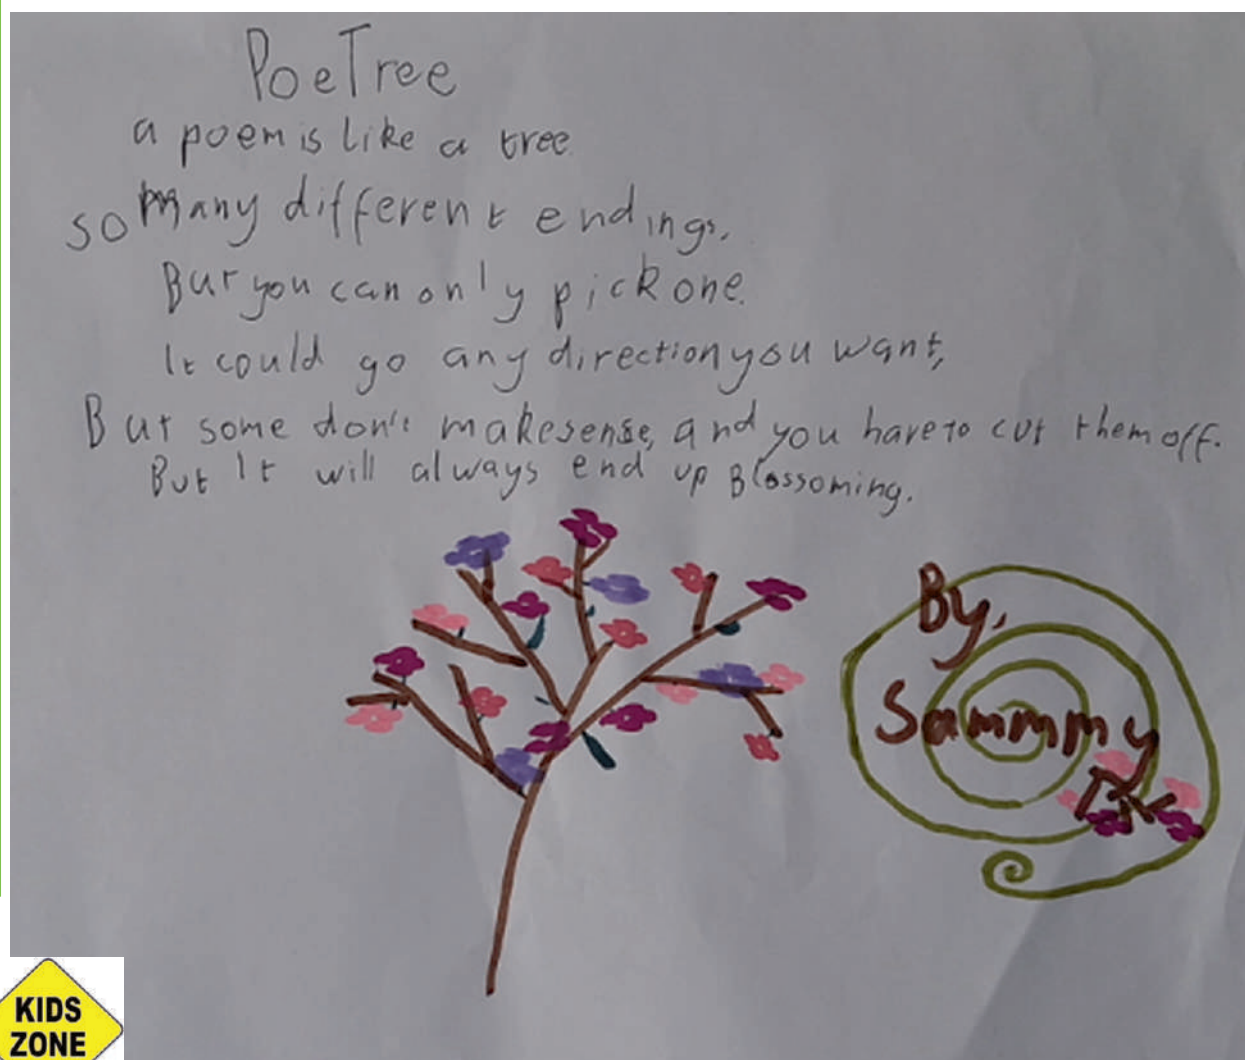 PoeTree
a poem is like a tree.
so many different endings,
But you can only pick one.
It could go any direction you want,
But some don't make sense, and you have to cut them off.
But It will always end up Blossoming.
By,
Sammmy
KIDS
ZONE